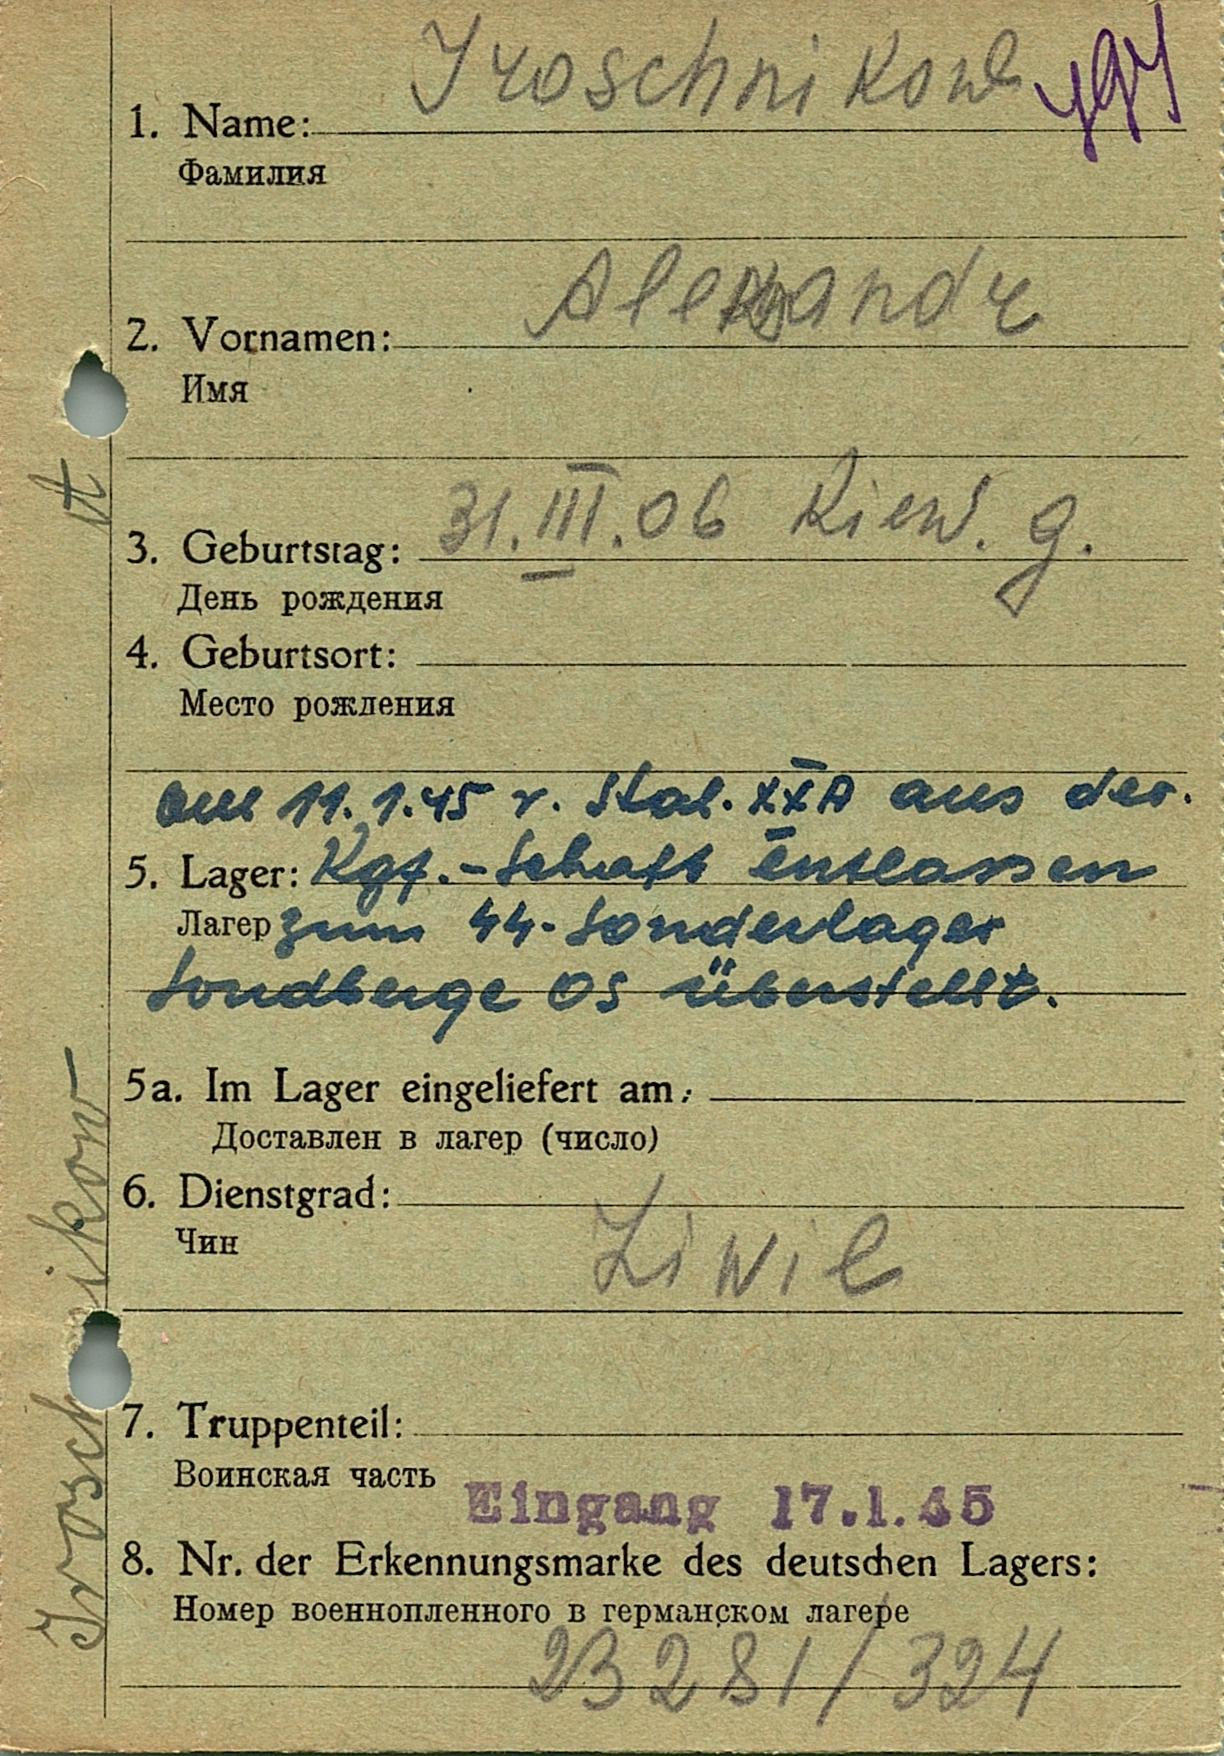 Iroschnikow
1. Name:
Фамилия
Alexandr
2. Vornamen:
Имя
31.III.06 Kiew. g.
3. Geburtstag:
День рождения
4. Geburtsort:
Место рождения
Am 11.1.45 v. Stal. XXA aus der
5. Lager: Kgf.-Schaft entlassen
Лагер zum SS-Sonderlager
Sondberge OS überstellt.
5a. Im Lager eingeliefert am:
Доставлен в лагер (число)
6. Dienstgrad:
Чин
Ziwil
7. Truppenteil:
Воинская часть
Eingang 17.1.45
8. Nr. der Erkennungsmarke des deutschen Lagers:
Номер военнопленного в германском лагере
23281/324
Iroschnikow